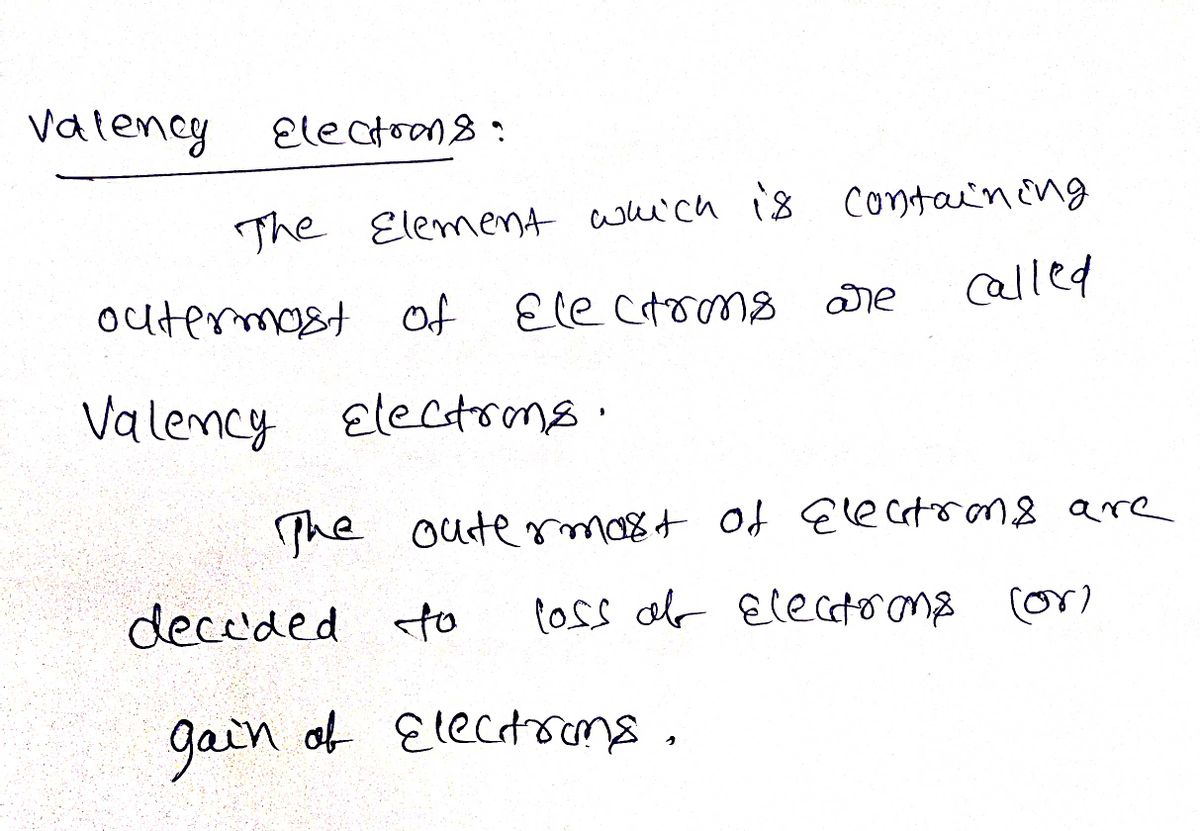 Valency Electrons:
The Element which is containing
outermost of Electrons are called
Valency Electrons.
The outermost of Electrons are
decided to loss of Electrons (or)
gain of Electrons.